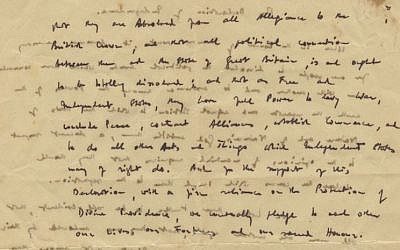 that they are Absolved from all Allegiance to the
British Crown, and that all political connection
between them and the State of Great Britain, is and ought
to be totally dissolved; and that as Free and
Independent States, they have full Power to levy War,
conclude Peace, contract Alliances, establish Commerce, and
to do all other Acts and Things which Independent States
may of right do. And for the support of this
Declaration, with a firm reliance on the Protection of
Divine Providence, we mutually pledge to each other
our Lives, our Fortunes, and our sacred Honour.